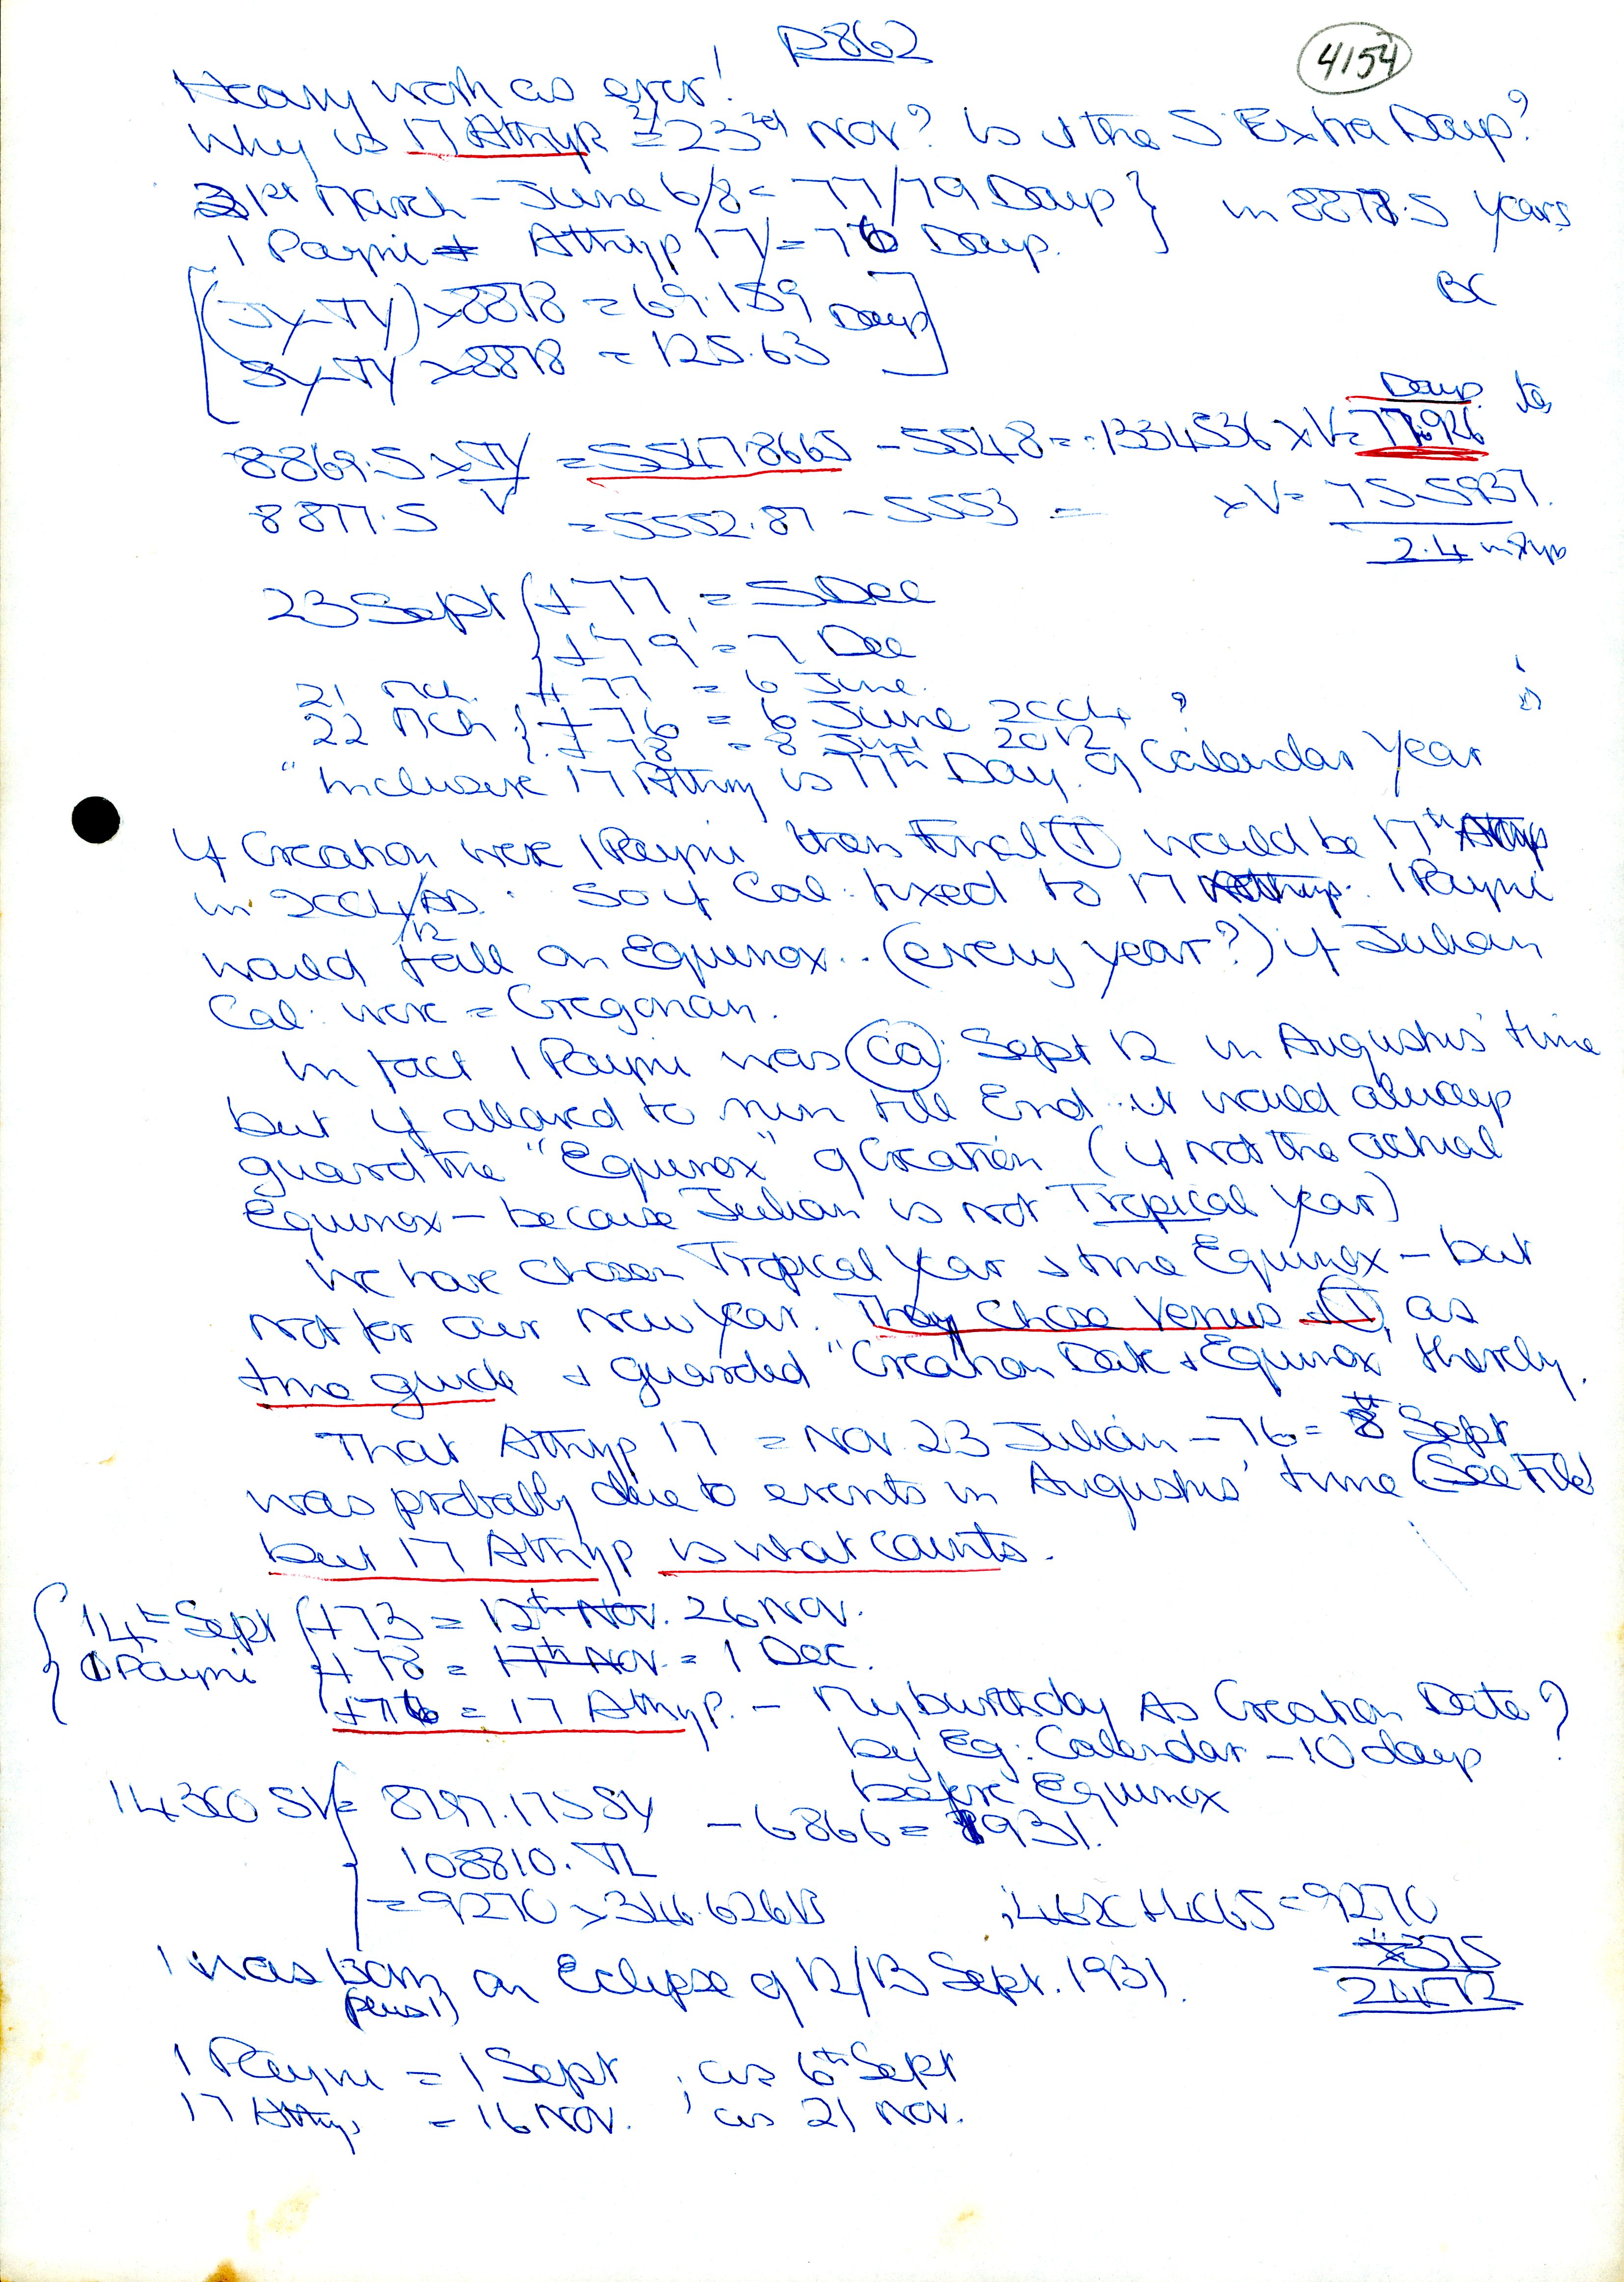 P862
4154
Heavy work as ever!
Why is 17 Athyr = 23rd Nov? Is it the 5 Extra Days?
21st March - June 6/8 = 77/79 Days } in 8878.5 years
1 Payni + Athyr 17 = 76 Days.
BC
[(JY-TY) x 8878 = 69.159 Days
SY-TY x 8878 = 125.63]
Days
8869.5 x TY/V = 5547.8665 - 5548 = .1334536 x V = 77.926
8877.5 = 5552.87 - 5553 = x V = 75.5937.
2.4
23 Sept { + 77 = 5 Dec
+ 79 = 7 Dec
21 Mch. + 77 = 6 June.
22 Mch { + 76 = 6 June 2004 ?
+ 78 = 8 June 2012
"Inclusive 17 Athyr is 77th Day of Calendar Year
If Creation were 1 Payni then Final T would be 17th Athyr
in 2004/12 AD. So if Cal: fixed to 17 Athyr. 1 Payni
would fall on Equinox.. (every year?) if Julian
Cal: were = Gregorian.
In fact 1 Payni was ca: Sept 12 in Augustus' time
but if allowed to run till End it would always
guard the "Equinox" of Creation (if not the actual
Equinox - because Julian is not Tropical Year)
We have chosen Tropical Year & time Equinox - but
not for our New Year. They chose Venus & T, as
time guide & guarded "Creation Date & Equinox" thereby.
That Athyr 17 = Nov 23 Julian - 76 = 8th Sept
was probably due to events in Augustus' time (See File)
but 17 Athyr is what counts.
{ 14th Sept { + 73 = 12th Nov. 26 Nov.
1 Payni + 78 = 17th Nov = 1 Dec.
+ 76 = 17 Athyr. - My birthday as Creation Date?
by Eg: Calendar - 10 days
before Equinox
14360 SV = { 8797.175 SY - 6866 = 1931.
108810. TL
= 9270 x 346.62613
= 9270
x 375
I was Born on Eclipse of 12/13 Sept. 1931.
(plus 1)
1 Payni = 1 Sept ; as 6th Sept
17 Athyr = 16 Nov. ; as 21 Nov.